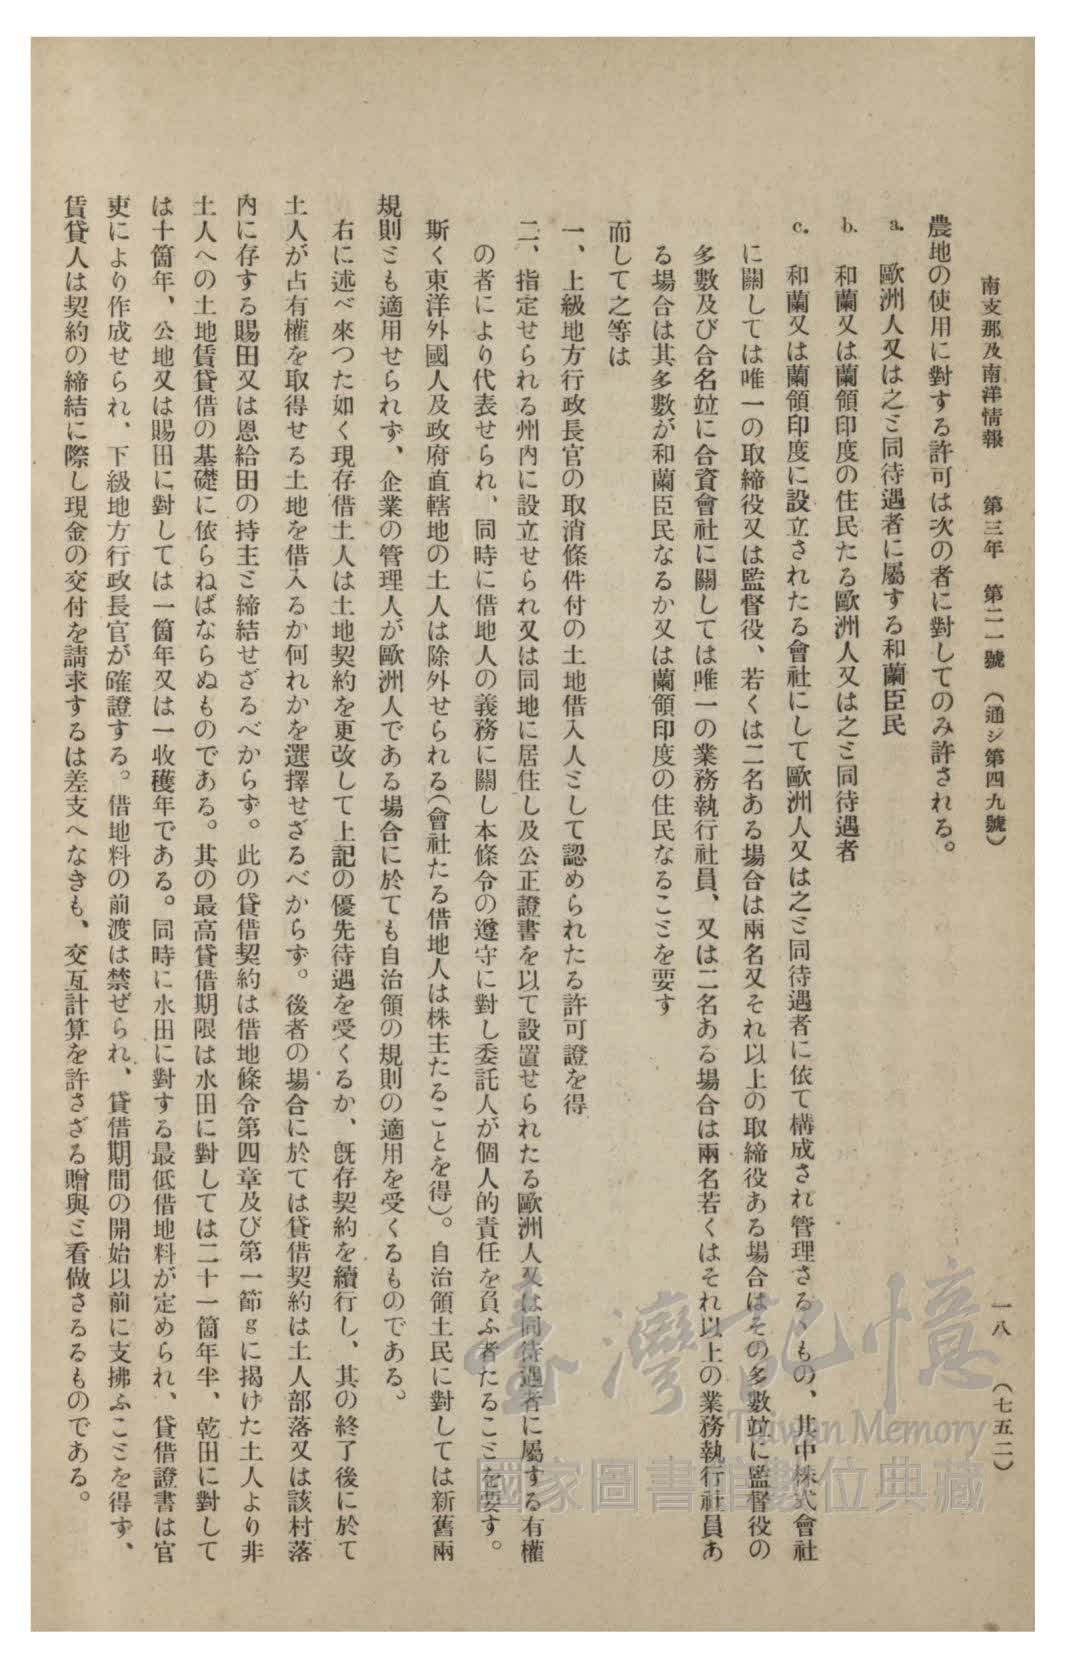 南支那及南洋情報　第三年　第二一號　（通シ第四九號）　一八　（七五二）
農地の使用に對する許可は次の者に對してのみ許される。
a. 歐洲人又は之と同待遇者に屬する和蘭臣民
b. 和蘭又は蘭領印度の住民たる歐洲人又は之と同待遇者
c. 和蘭又は蘭領印度に設立されたる會社にして歐洲人又は之と同待遇者に依て構成され管理さるゝもの、其中株式會社
に關しては唯一の取締役又は監督役、若くは二名ある場合は兩名又それ以上の取締役ある場合はその多數竝に監督役の
多數及び合名竝に合資會社に關しては唯一の業務執行社員、又は二名ある場合は兩名若くはそれ以上の業務執行社員あ
る場合は其多數が和蘭臣民なるか又は蘭領印度の住民なることを要す
而して之等は
一、上級地方行政長官の取消條件付の土地借入人として認められたる許可證を得
二、指定せられる州内に設立せられ又は同地に居住し及公正證書を以て設置せられたる歐洲人又は同待遇者に屬する有權
の者により代表せられ、同時に借地人の義務に關し本條令の遵守に對し委託人が個人的責任を負ふ者たることを要す。
斯く東洋外國人及政府直轄地の土人は除外せられる（會社たる借地人は株主たることを得）。自治領土民に對しては新舊兩
規則とも適用せられず、企業の管理人が歐洲人である場合に於ても自治領の規則の適用を受くるものである。
右に述べ來つた如く現存借土人は土地契約を更改して上記の優先待遇を受くるか、既存契約を續行し、其の終了後に於て
土人が占有權を取得せる土地を借入るか何れかを選擇せざるべからず。後者の場合に於ては貸借契約は土人部落又は該村落
内に存する賜田又は恩給田の持主と締結せざるべからず。此の貸借契約は借地條令第四章及び第一節gに揭げた土人より非
土人への土地賃貸借の基礎に依らねばならぬものである。其の最高貸借期限は水田に對しては二十一箇年半、乾田に對して
は十箇年、公地又は賜田に對しては一箇年又は一收穫年である。同時に水田に對する最低借地料が定められ、貸借證書は官
吏により作成せられ、下級地方行政長官が確證する。借地料の前渡は禁ぜられ、貸借期間の開始以前に支拂ふことを得ず、
賃貸人は契約の締結に際し現金の交付を請求するは差支へなきも、交互計算を許さざる贈與と看做さるるものである。
臺灣記憶
Taiwan Memory
國家圖書館數位典藏